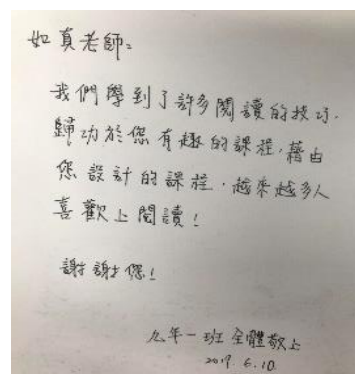 如真老師：
我們學到了許多閱讀的技巧，
歸功於您有趣的課程，藉由
您設計的課程，越來越多人
喜歡上閱讀！
謝謝您！
九年一班 全體敬上
2019. 6.10.